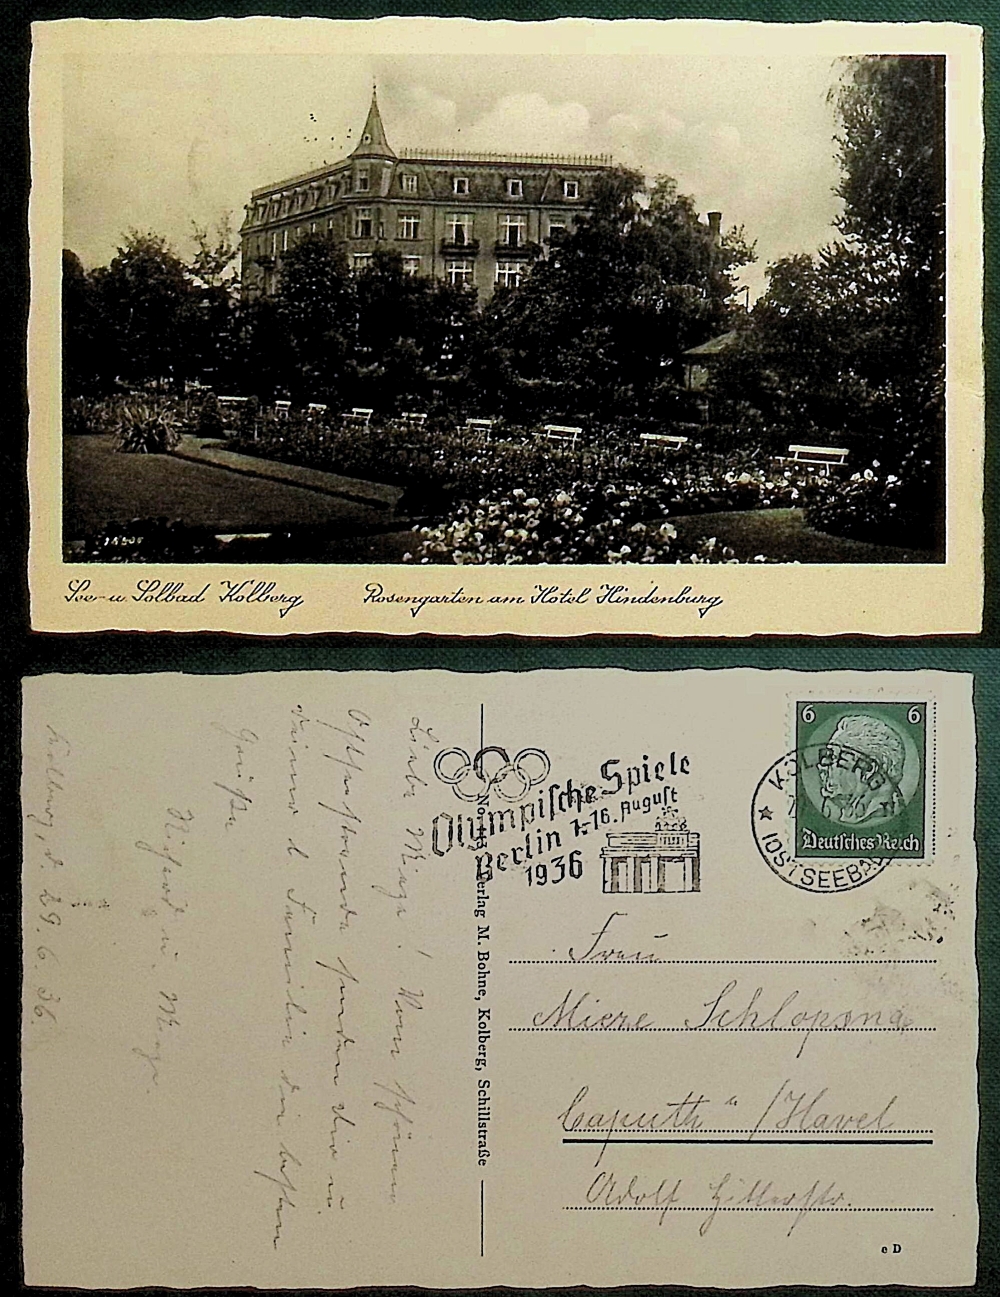 See- u Solbad Kolberg Rosengarten am Hotel Hindenburg
Kolberg, d. 29. 6. 36.
Liebe Mieze! Vom schönen
Ostseestrande senden dir u.
deiner l. Familie die besten
Grüße
Richard u.
Olympische Spiele
Berlin 1.-16. August
1936
6 6
Deutsches Reich
KOLBERG
OSTSEEBAD
Verlag M. Bohne, Kolberg, Schillstraße
Frau
Mieze
Caputh /Havel
Adolf Hitlerstr.
e D